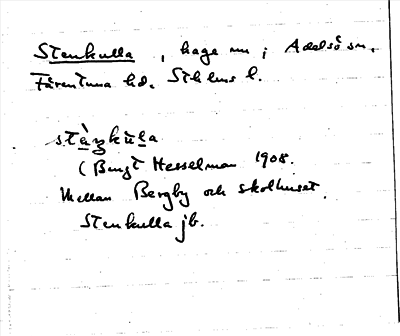 Stenkulla, hage nu, i Adelsö sn,
Färentuna hd. Sthlms l.
stæ̀ŋkŭl̥a
(Bengt Hesselman 1908.
Mellan Bergby och skolhuset.
Stenkulla jb.